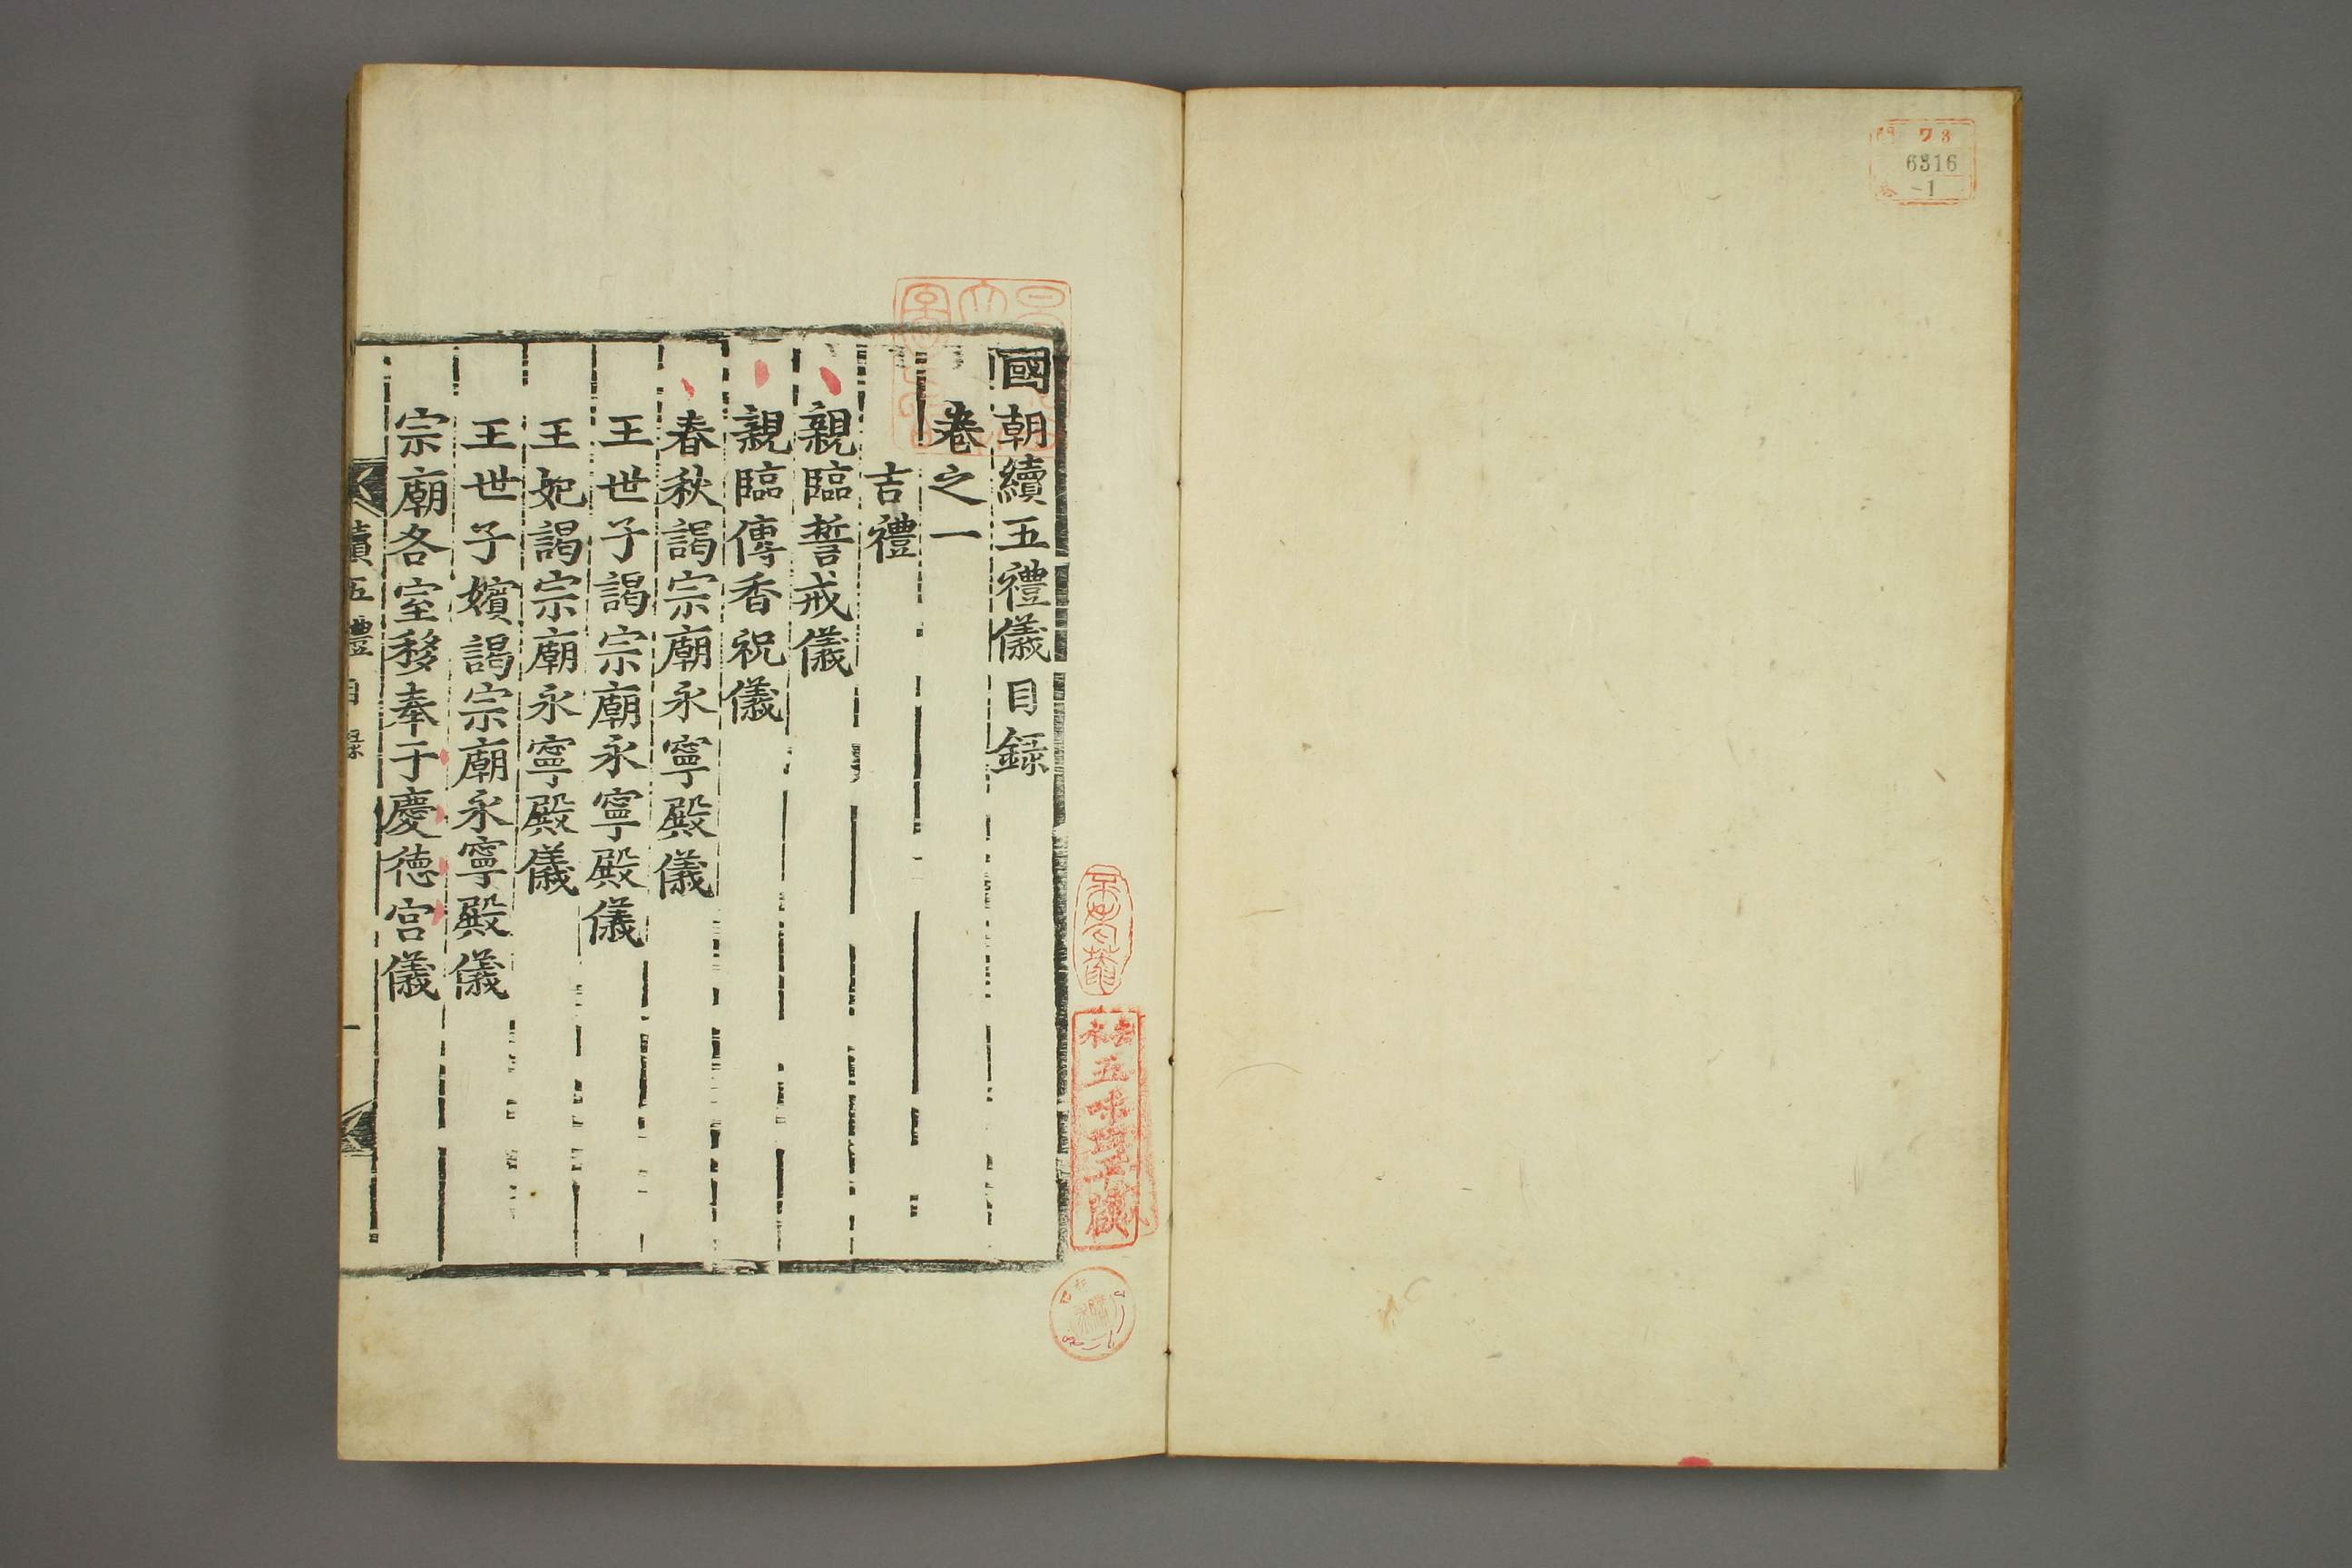 ワ3
6316
-1
國朝續五禮儀目錄
卷之一
吉禮
親臨誓戒儀
親臨傳香祝儀
春秋謁宗廟永寧殿儀
王世子謁宗廟永寧殿儀
王妃謁宗廟永寧殿儀
王世子嬪謁宗廟永寧殿儀
宗廟各室移奉于慶德宮儀
續五禮目錄
一